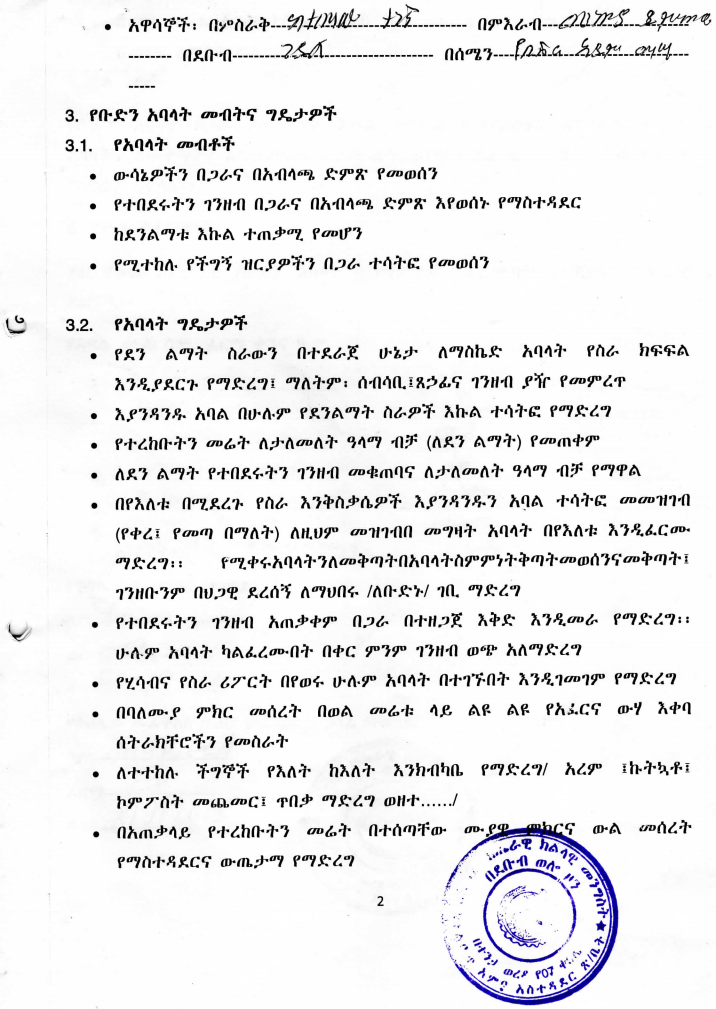 • አዋሳኞች፡ በምስራቅ---------- በምእራብ----------
-------- በደቡብ---------- በሰሜን----------
-----
3. የቡድን አባላት መብትና ግዴታዎች
3.1. የአባላት መብቶች
• ውሳኔዎችን በጋራና በአብላጫ ድምጽ የመወሰን
• የተበደሩትን ገንዘብ በጋራና በአብላጫ ድምጽ እየወሰኑ የማስተዳደር
• ከደንልማቱ እኩል ተጠቃሚ የመሆን
• የሚተከሉ የችግኝ ዝርያዎችን በጋራ ተሳትፎ የመወሰን
3.2. የአባላት ግዴታዎች
• የደን ልማት ስራውን በተደራጀ ሁኔታ ለማስኬድ አባላት የስራ ክፍፍል
እንዲያደርጉ የማድረግ፤ ማለትም፡ ሰብሳቢ፤ጸኃፊና ገንዘብ ያዥ የመምረጥ
• እያንዳንዱ አባል በሁሉም የደንልማት ስራዎች እኩል ተሳትፎ የማድረግ
• የተረከቡትን መሬት ለታለመለት ዓላማ ብቻ (ለደን ልማት) የመጠቀም
• ለደን ልማት የተበደሩትን ገንዘብ መቁጠባና ለታለመለት ዓላማ ብቻ የማዋል
• በየእለቱ በሚደረጉ የስራ እንቅስቃሴዎች እያንዳንዱን አባል ተሳትፎ መመዝገብ
(የቀረ፤ የመጣ በማለት) ለዚህም መዝገብበ መግዛት አባላት በየእለቱ እንዲፈርሙ
ማድረግ፡፡ የሚቀሩአባላትንለመቅጣትበአባላትስምምነትቅጣትመወሰንናመቅጣት፤
ገንዘቡንም በህጋዊ ደረሰኝ ለማህበሩ /ለቡድኑ/ ገቢ ማድረግ
• የተበደሩትን ገንዘብ አጠቃቀም በጋራ በተዘጋጀ እቅድ እንዲመራ የማድረግ፡፡
ሁሉም አባላት ካልፈረሙበት በቀር ምንም ገንዘብ ወጭ አለማድረግ
• የሂሳብና የስራ ሪፖርት በየወሩ ሁሉም አባላት በተገኙበት እንዲገመገም የማድረግ
• በባለሙያ ምክር መሰረት በወል መሬቱ ላይ ልዩ ልዩ የአፈርና ውሃ እቀባ
ሰትራክቸሮችን የመስራት
• ለተተከሉ ችግኞች የእለት ከእለት እንክብካቤ የማድረግ/ አረም ፤ኩትኳቶ፤
ኮምፖስት መጨመር፤ ጥበቃ ማድረግ ወዘተ....../
• በአጠቃላይ የተረከቡትን መሬት በተሰጣቸው ሙያዊ ምክርና ውል መሰረት
የማስተዳደርና ውጤታማ የማድረግ
2
ክልላዊ መንግስት
በደቡብ ወሎ ዞን
ወረዳ የ07
አስተዳደር ጽ/ቤት